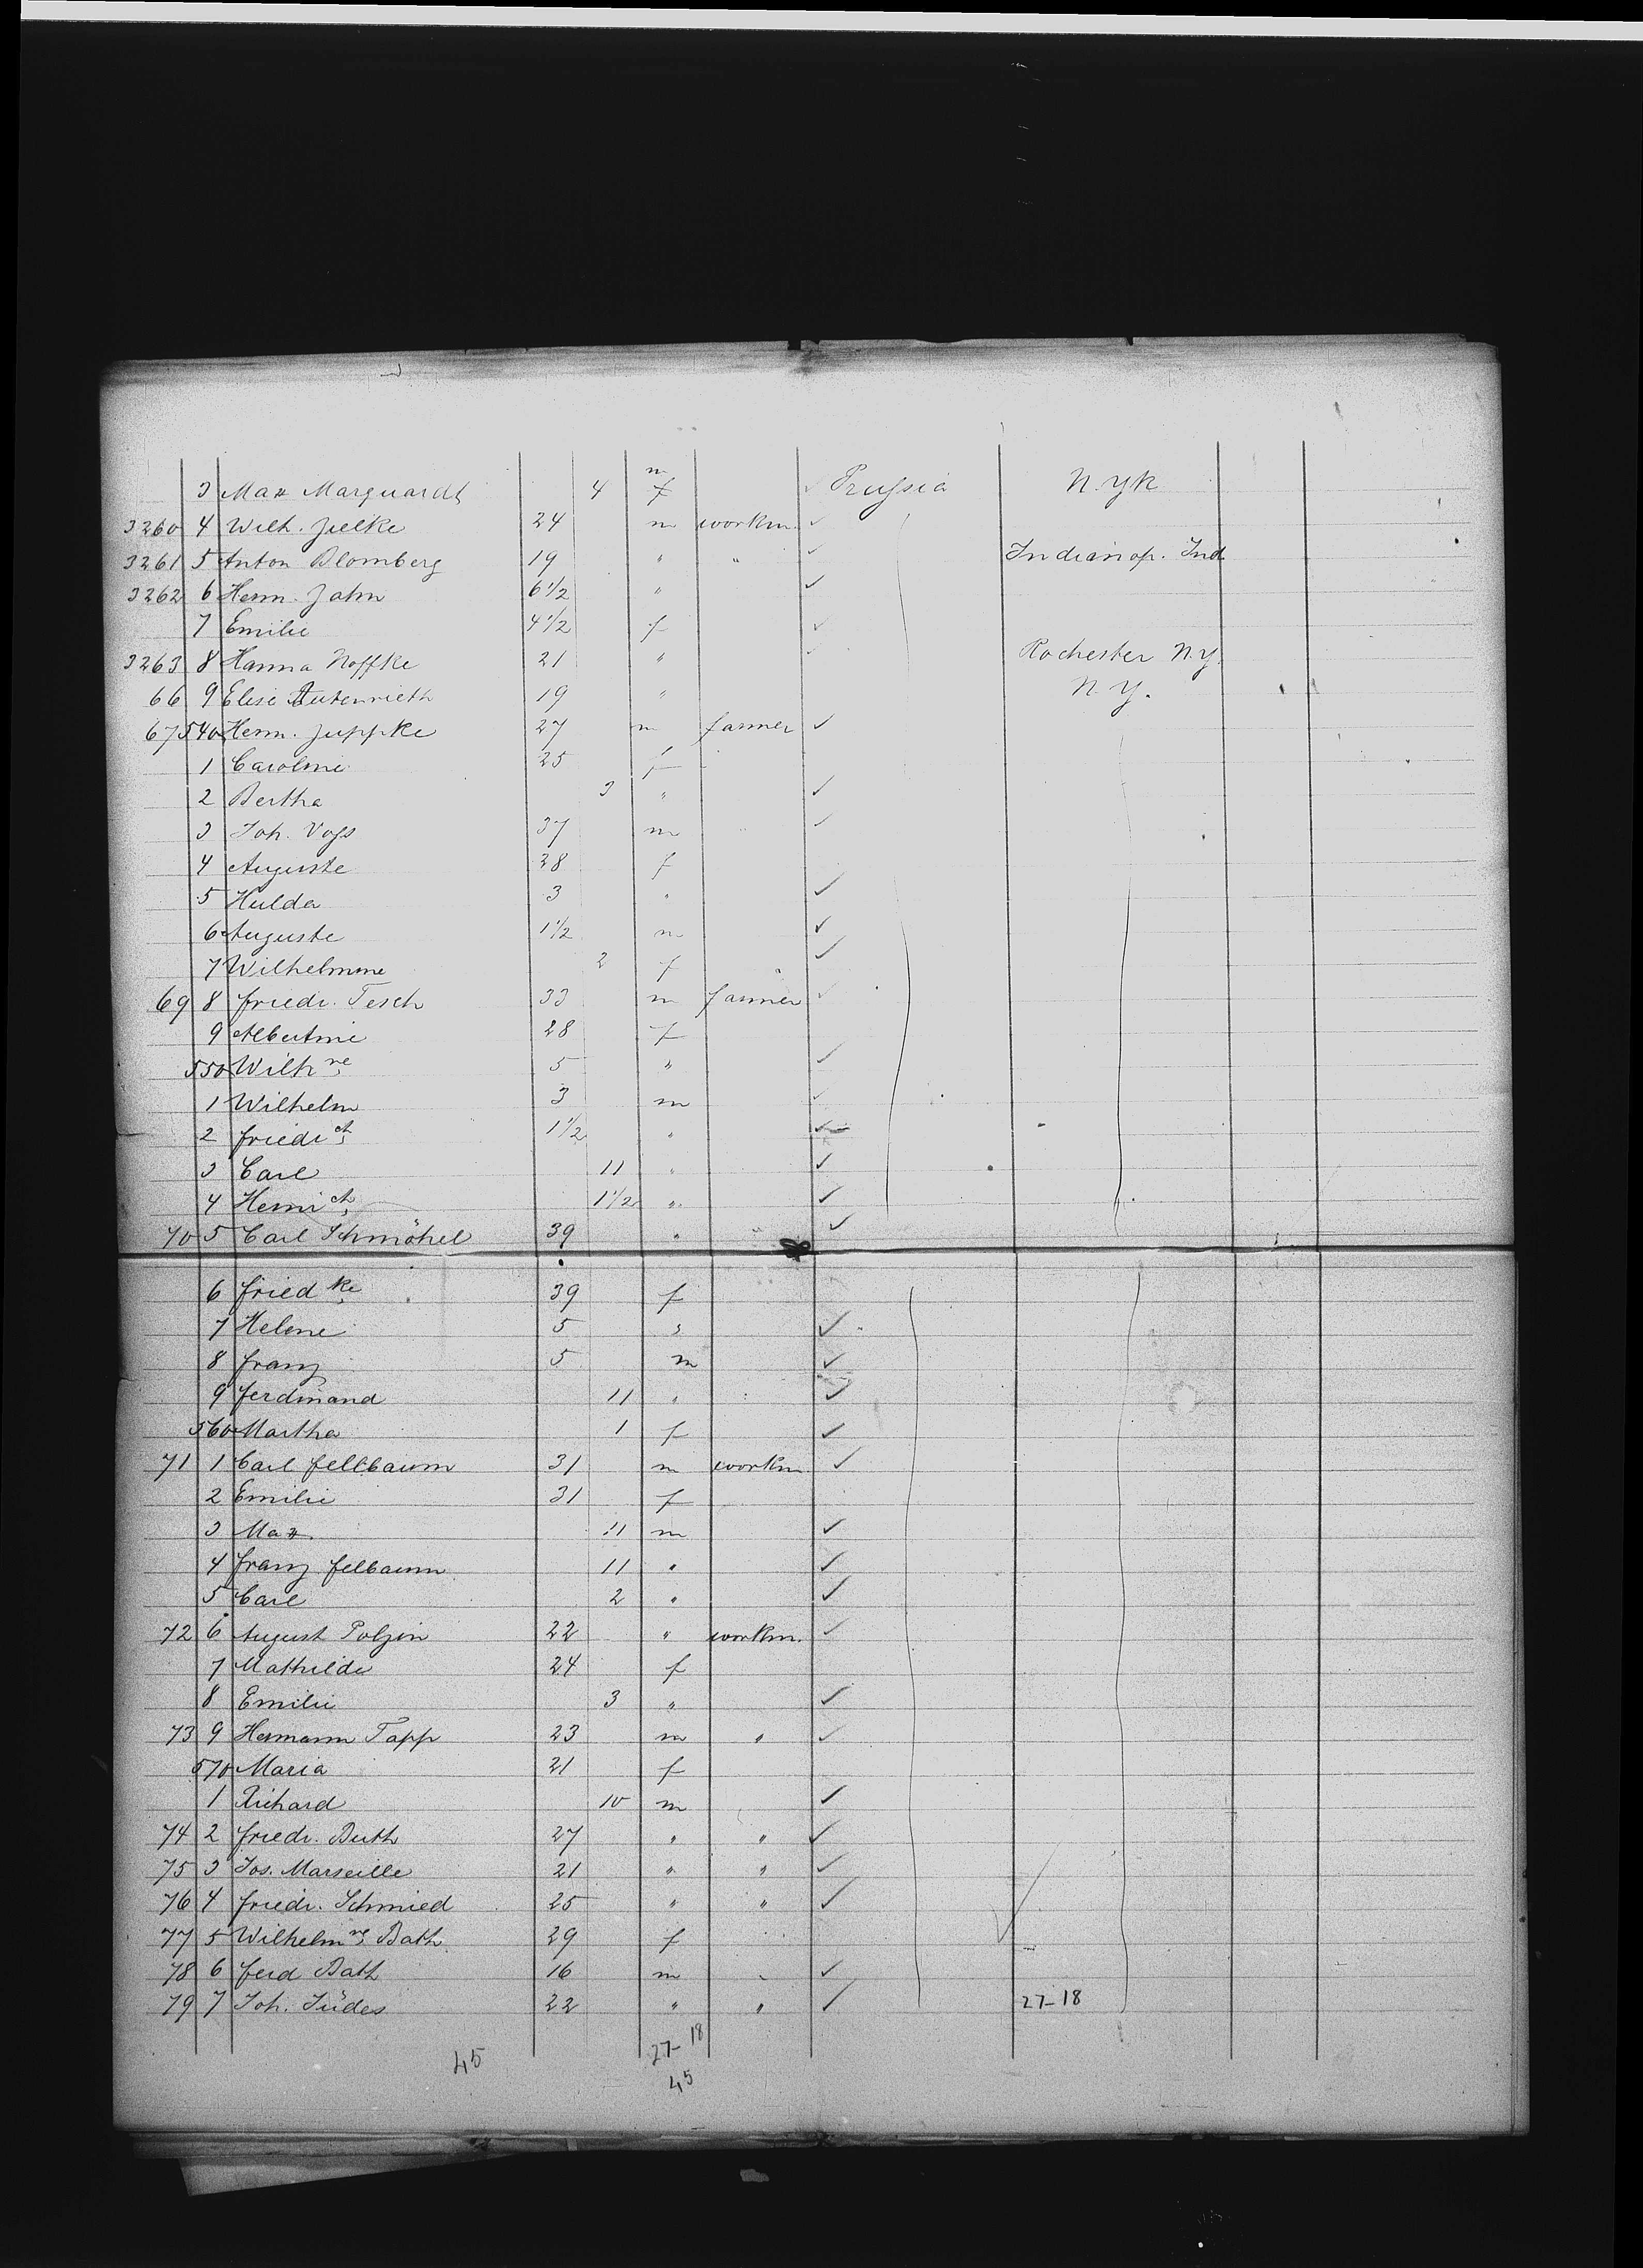 3 Max Marquardt 4 m f Prussia N.Yk
3260 4 Wilh. Zielke 24 m workm.
3261 5 Anton Blomberg 19 " " Indianop. Ind
3262 6 Herm. Jahn 6 1/2 "
7 Emilie 4 1/2 f
3263 8 Hanna Noffke 21 " Rochester N.Y.
66 9 Elise Autenrieth 19 " N.Y.
67 540 Herm. Juppke 27 m farmer
1 Caroline 25 f
2 Bertha 3 "
3 Joh. Voss 37 m "
4 Auguste 28 f
5 Hulda 3 "
6 Auguste 1 1/2 m
7 Wilhelmine 2 f
69 8 Friedr. Tesch 33 m farmer
9 Albertine 28 f
550 Wilh ne 5 "
1 Wilhelm 3 m
2 Friedr ch 1 1/2 "
3 Carl 11 "
4 Heinr ch 1 1/2 "
70 5 Carl Schmöhel 39 " "
6 Fried ke 39 f
7 Helene 5 "
8 Franz 5 m
9 Ferdinand 11 "
560 Martha 1 f
71 1 Carl Fellbaum 31 m workm
2 Emilie 31 f
3 Max 11 m
4 Franz Felbaum 11 "
5 Carl 2 "
72 6 August Polzin 22 " workm.
7 Mathilde 24 f
8 Emilie 3 "
73 9 Hermann Tapp 23 m "
570 Maria 21 f
1 Richard 10 m
74 2 Friedr. Buth 27 " "
75 3 Jos. Marseille 21 " "
76 4 Friedr. Schmied 25 " "
77 5 Wilhelm ne Bath 29 f
78 6 Ferd Bath 16 m "
79 7 Joh. Jüdes 22 " " 27-18
45 27-18
45